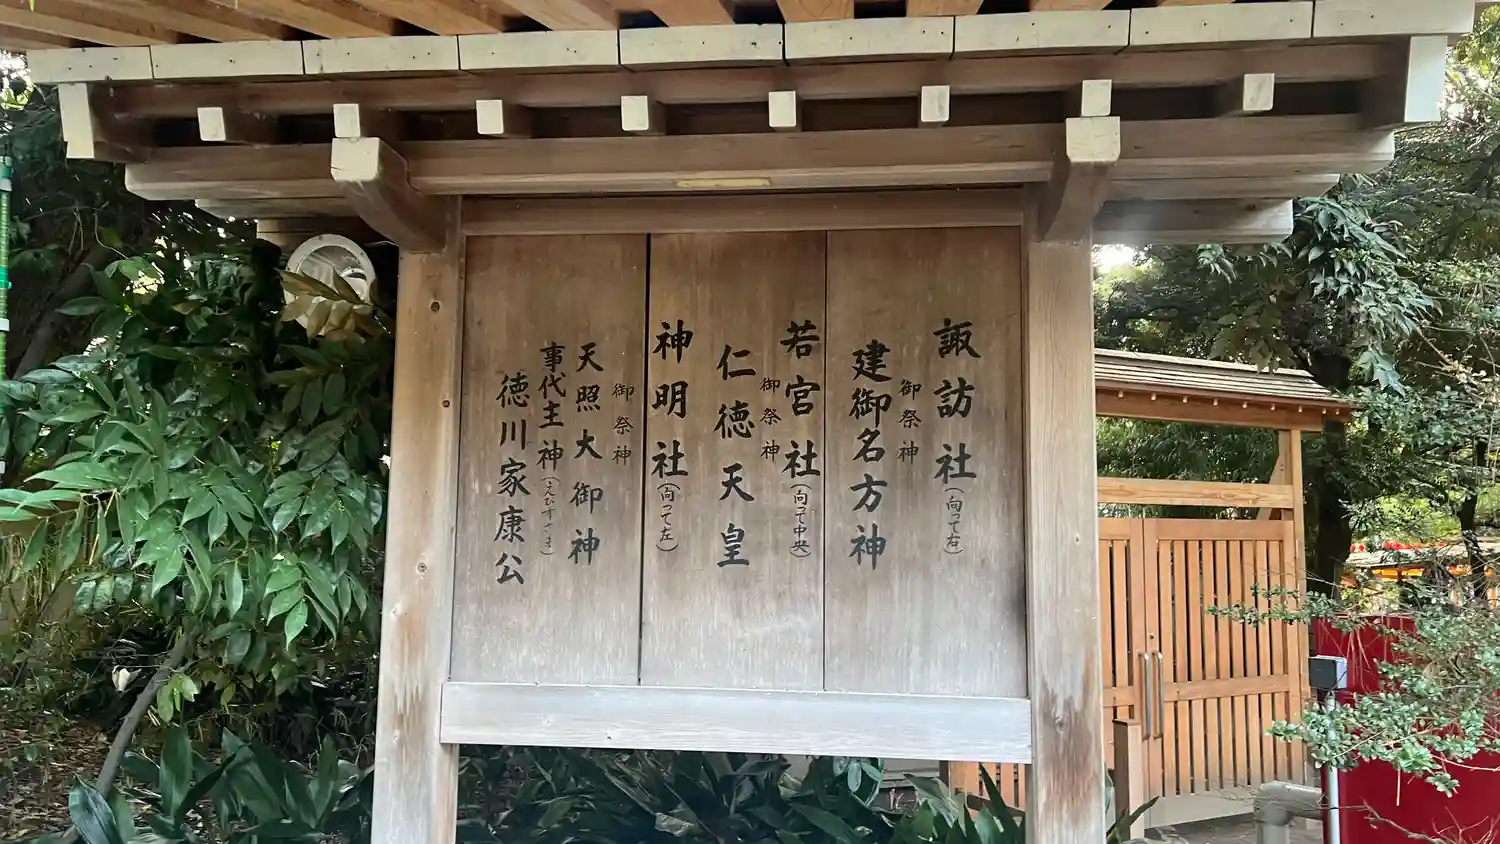 諏訪社(向って右)
御祭神
建御名方神
若宮社(向って中央)
御祭神
仁徳天皇
神明社(向って左)
御祭神
天照大御神
事代主神(えびすさま)
徳川家康公